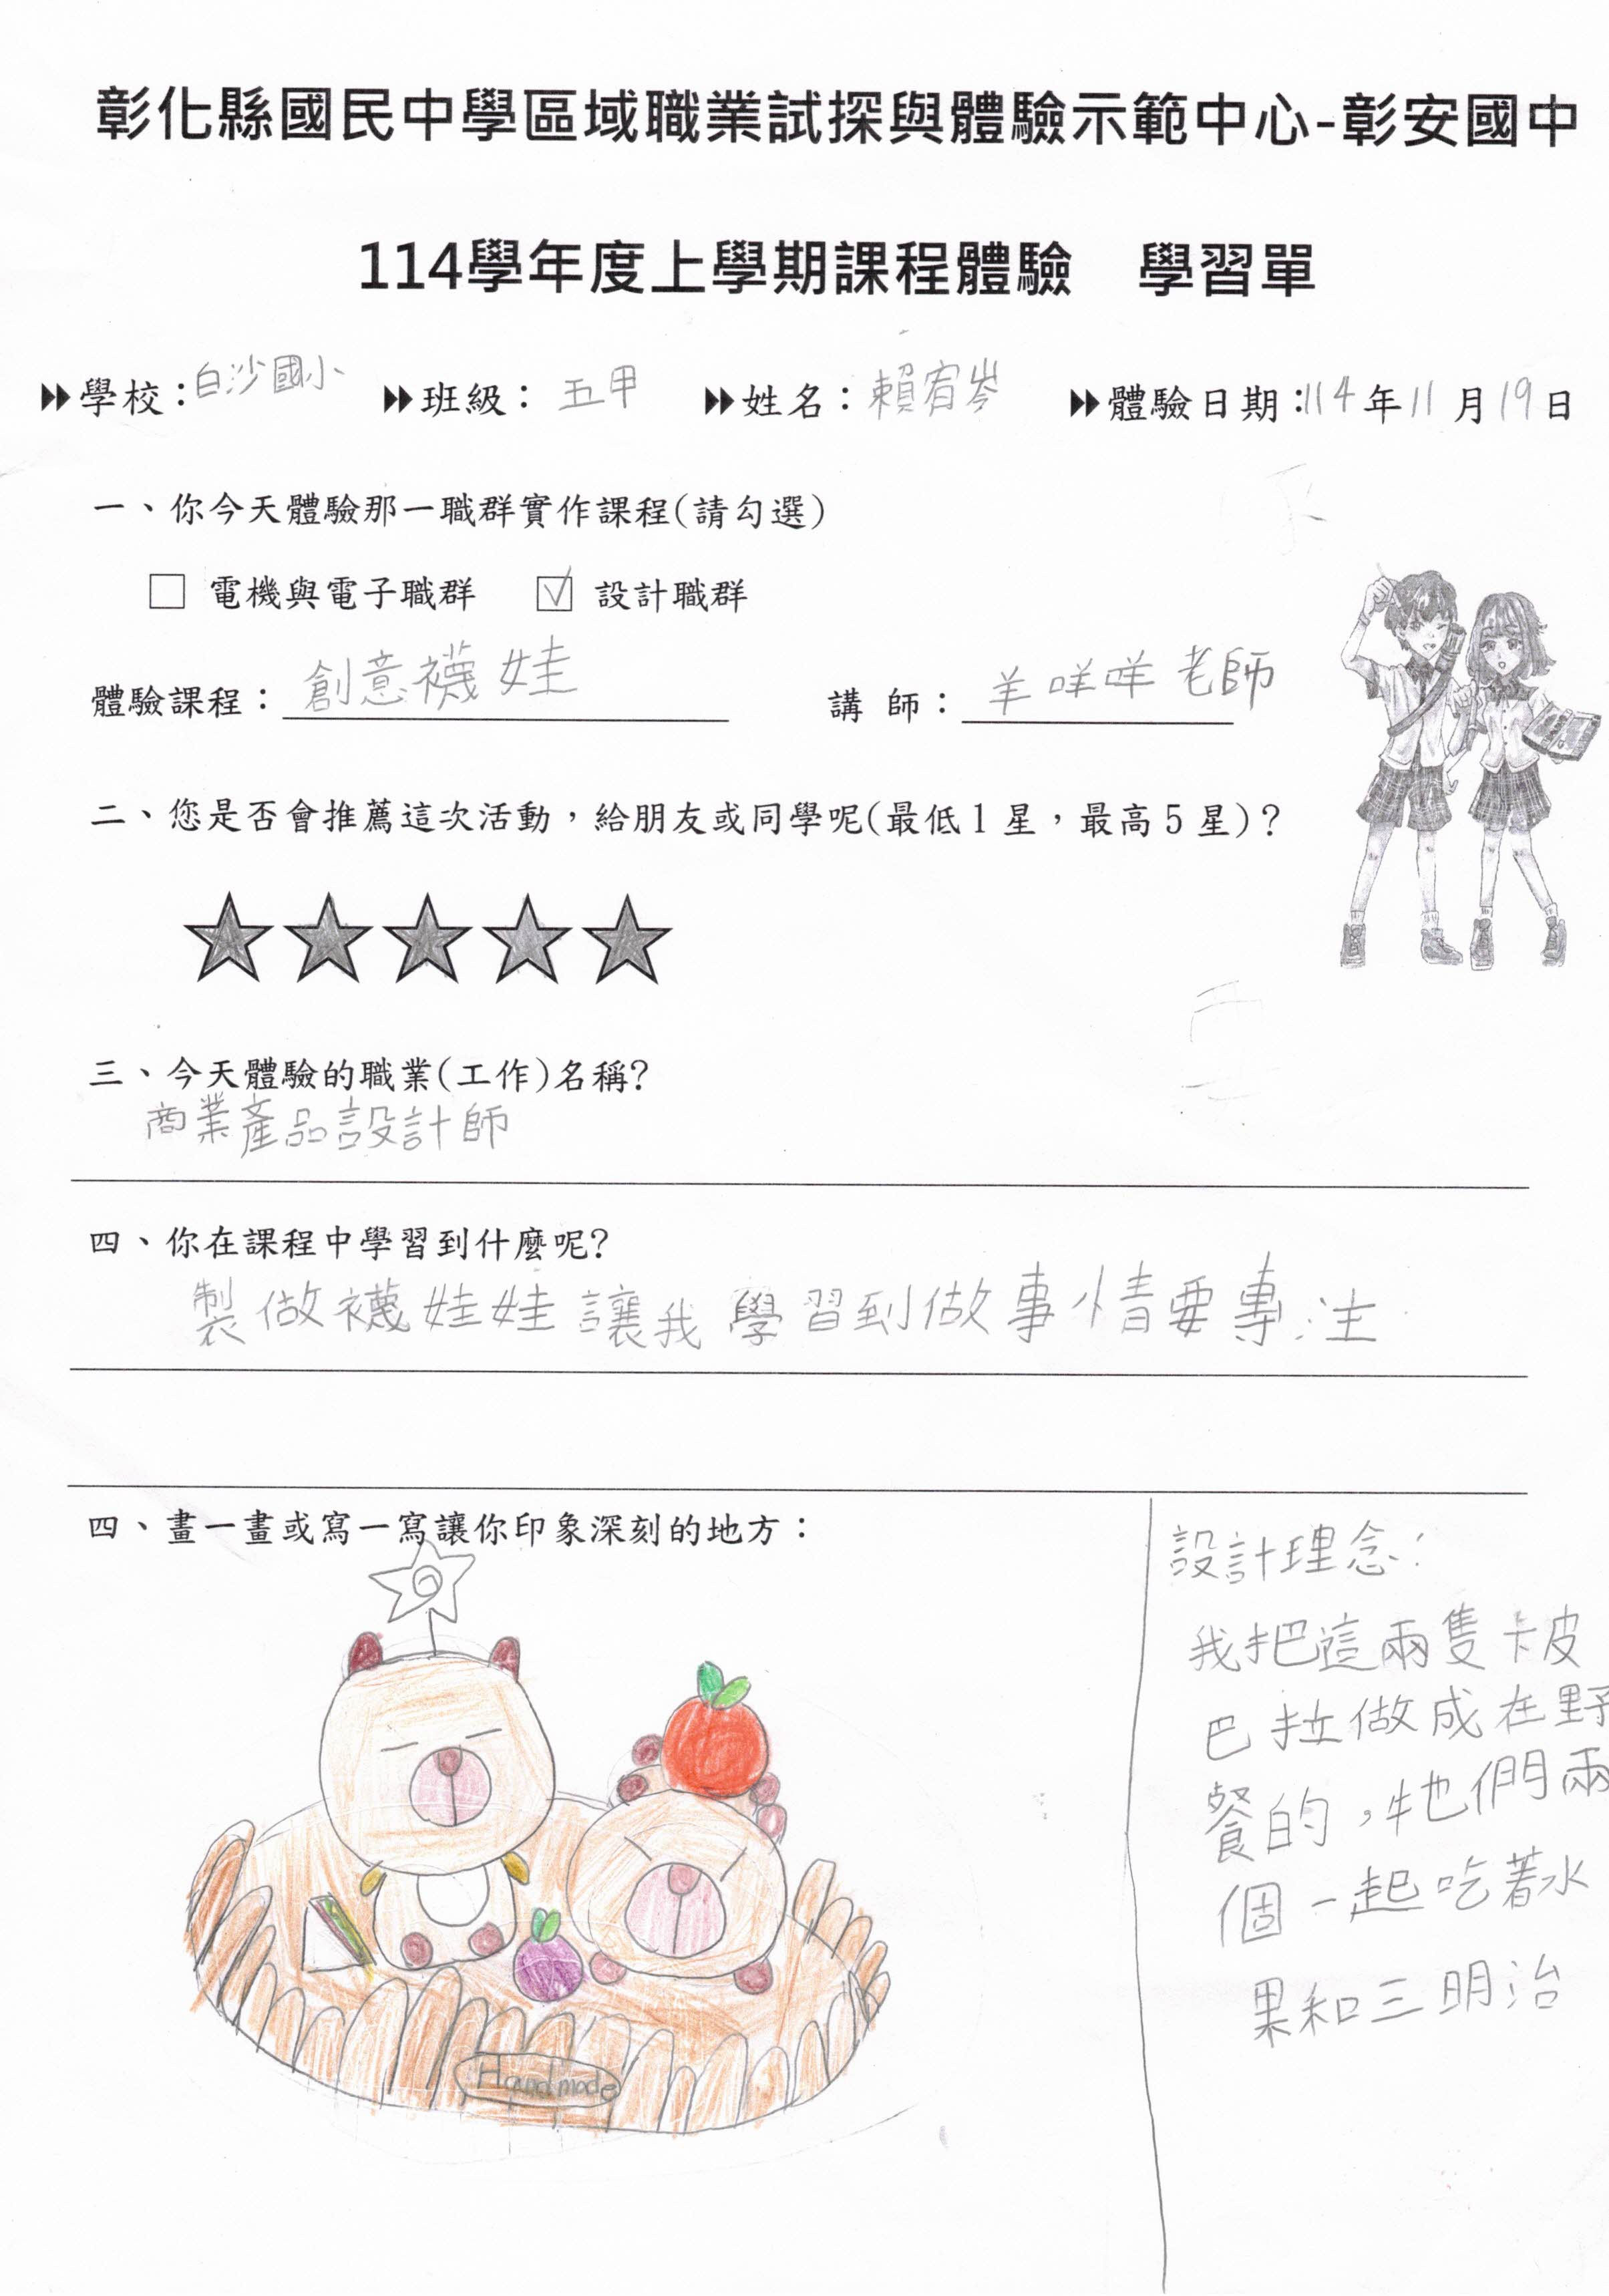 彰化縣國民中學區域職業試探與體驗示範中心-彰安國中
114學年度上學期課程體驗　學習單
學校：白沙國小　班級：五甲　姓名：賴宥岑　體驗日期：114年11月19日
一、你今天體驗那一職群實作課程(請勾選)
□ 電機與電子職群　☑ 設計職群
體驗課程：創意襪娃　講 師：羊咩咩老師
二、您是否會推薦這次活動，給朋友或同學呢(最低1星，最高5星)？
三、今天體驗的職業(工作)名稱?
商業產品設計師
四、你在課程中學習到什麼呢?
製做襪娃娃讓我學習到做事情要專注
四、畫一畫或寫一寫讓你印象深刻的地方：
Handmade
設計理念：
我把這兩隻卡皮
巴拉做成在野
餐的，牠們兩
個一起吃著水
果和三明治